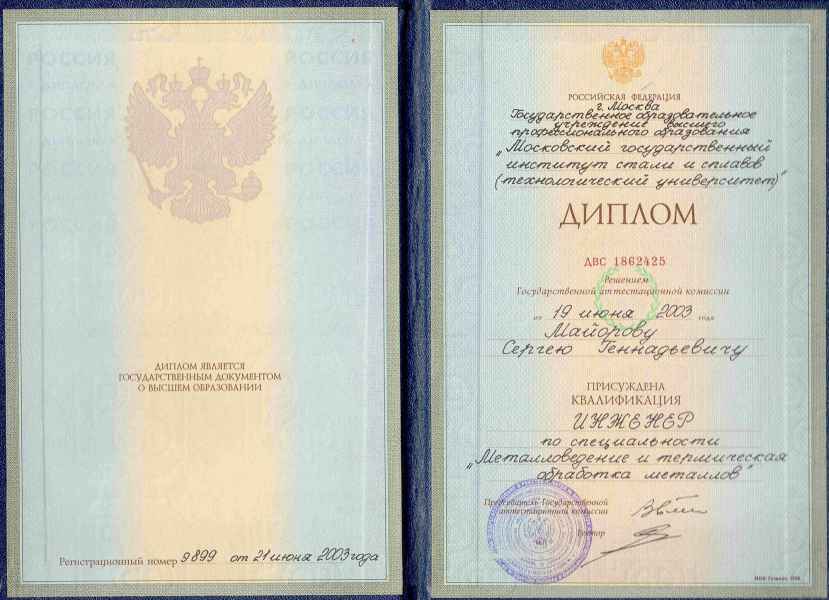 ДИПЛОМ ЯВЛЯЕТСЯ
ГОСУДАРСТВЕННЫМ ДОКУМЕНТОМ
О ВЫСШЕМ ОБРАЗОВАНИИ
Регистрационный номер 9899 от 21 июня 2003 года
РОССИЙСКАЯ ФЕДЕРАЦИЯ
г. Москва
Государственное образовательное
учреждение высшего
профессионального образования
„Московский государственный
институт стали и сплавов
(технологический университет)"
ДИПЛОМ
ДВС 1862425
Решением
Государственной аттестационной комиссии
от 19 июня 2003 года
Майорову
Сергею Геннадьевичу
ПРИСУЖДЕНА
КВАЛИФИКАЦИЯ
ИНЖЕНЕР
по специальности
„Металловедение и термическая
обработка металлов"
Председатель Государственной
аттестационной комиссии
Ректор